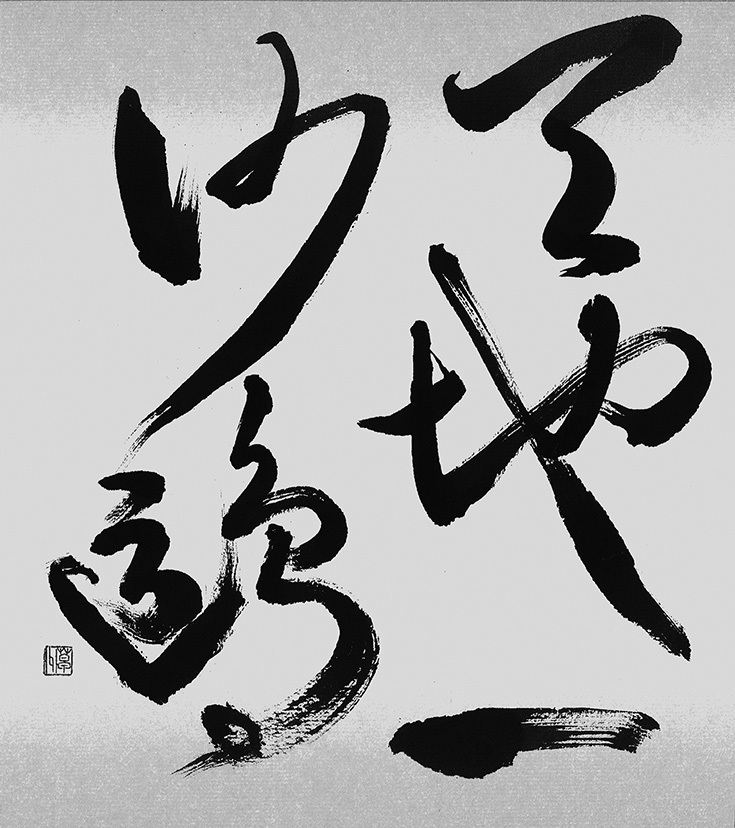 天地一
沙鷗